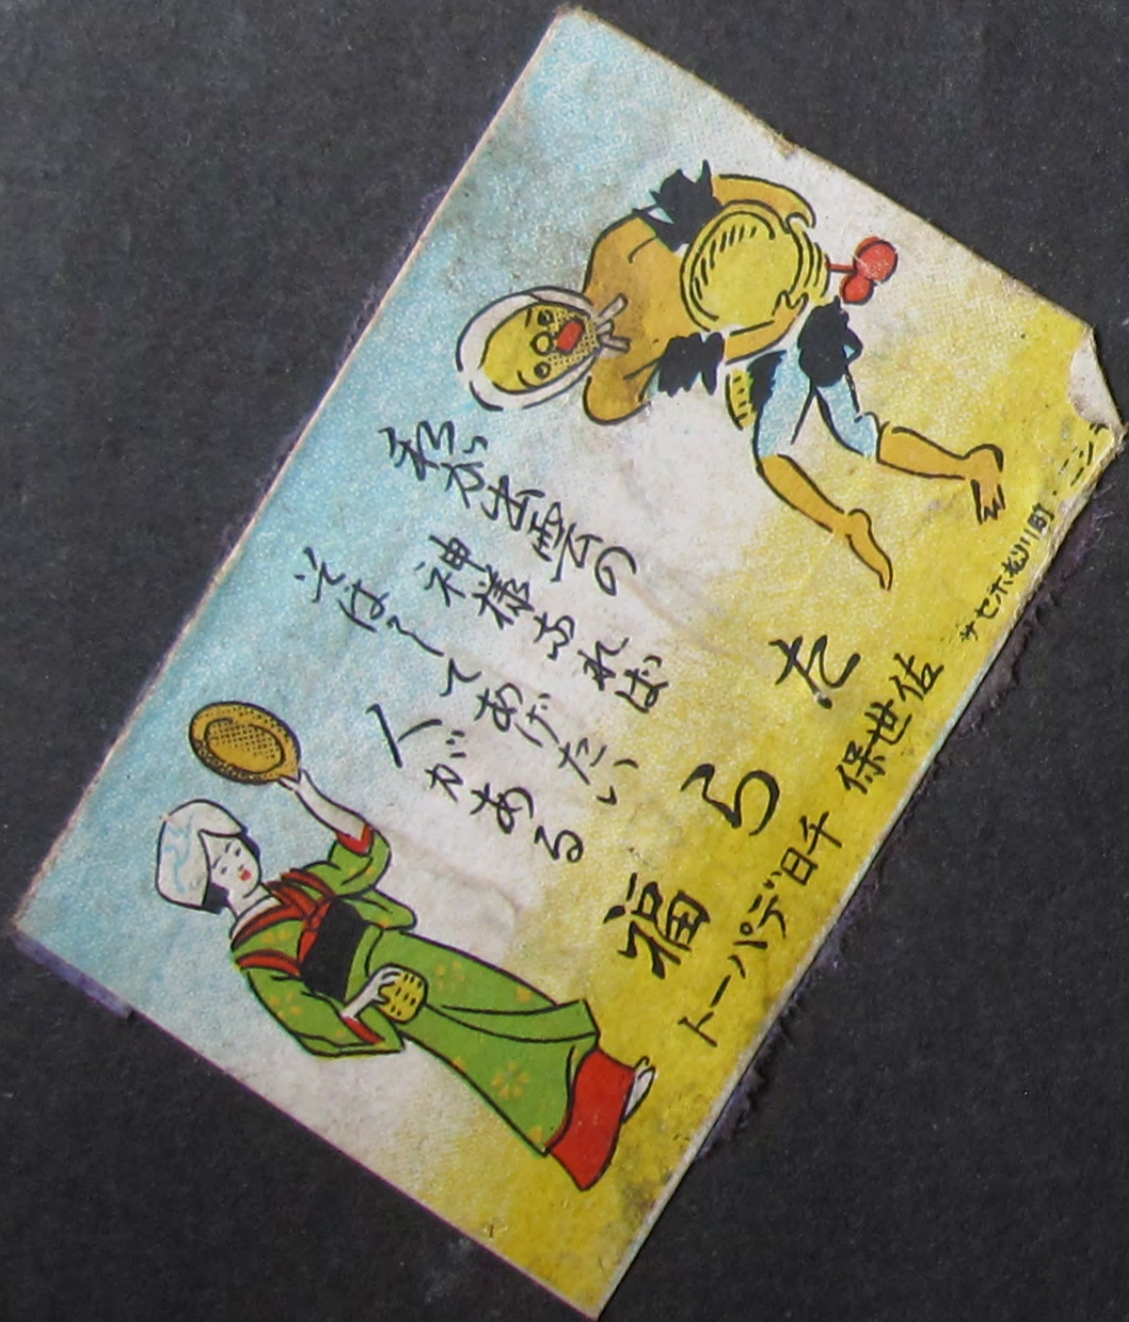 私が出雲の
神様あれば
そはしてあげたい
人がある
たら福
佐世保 千日デパート
サセホ松川町